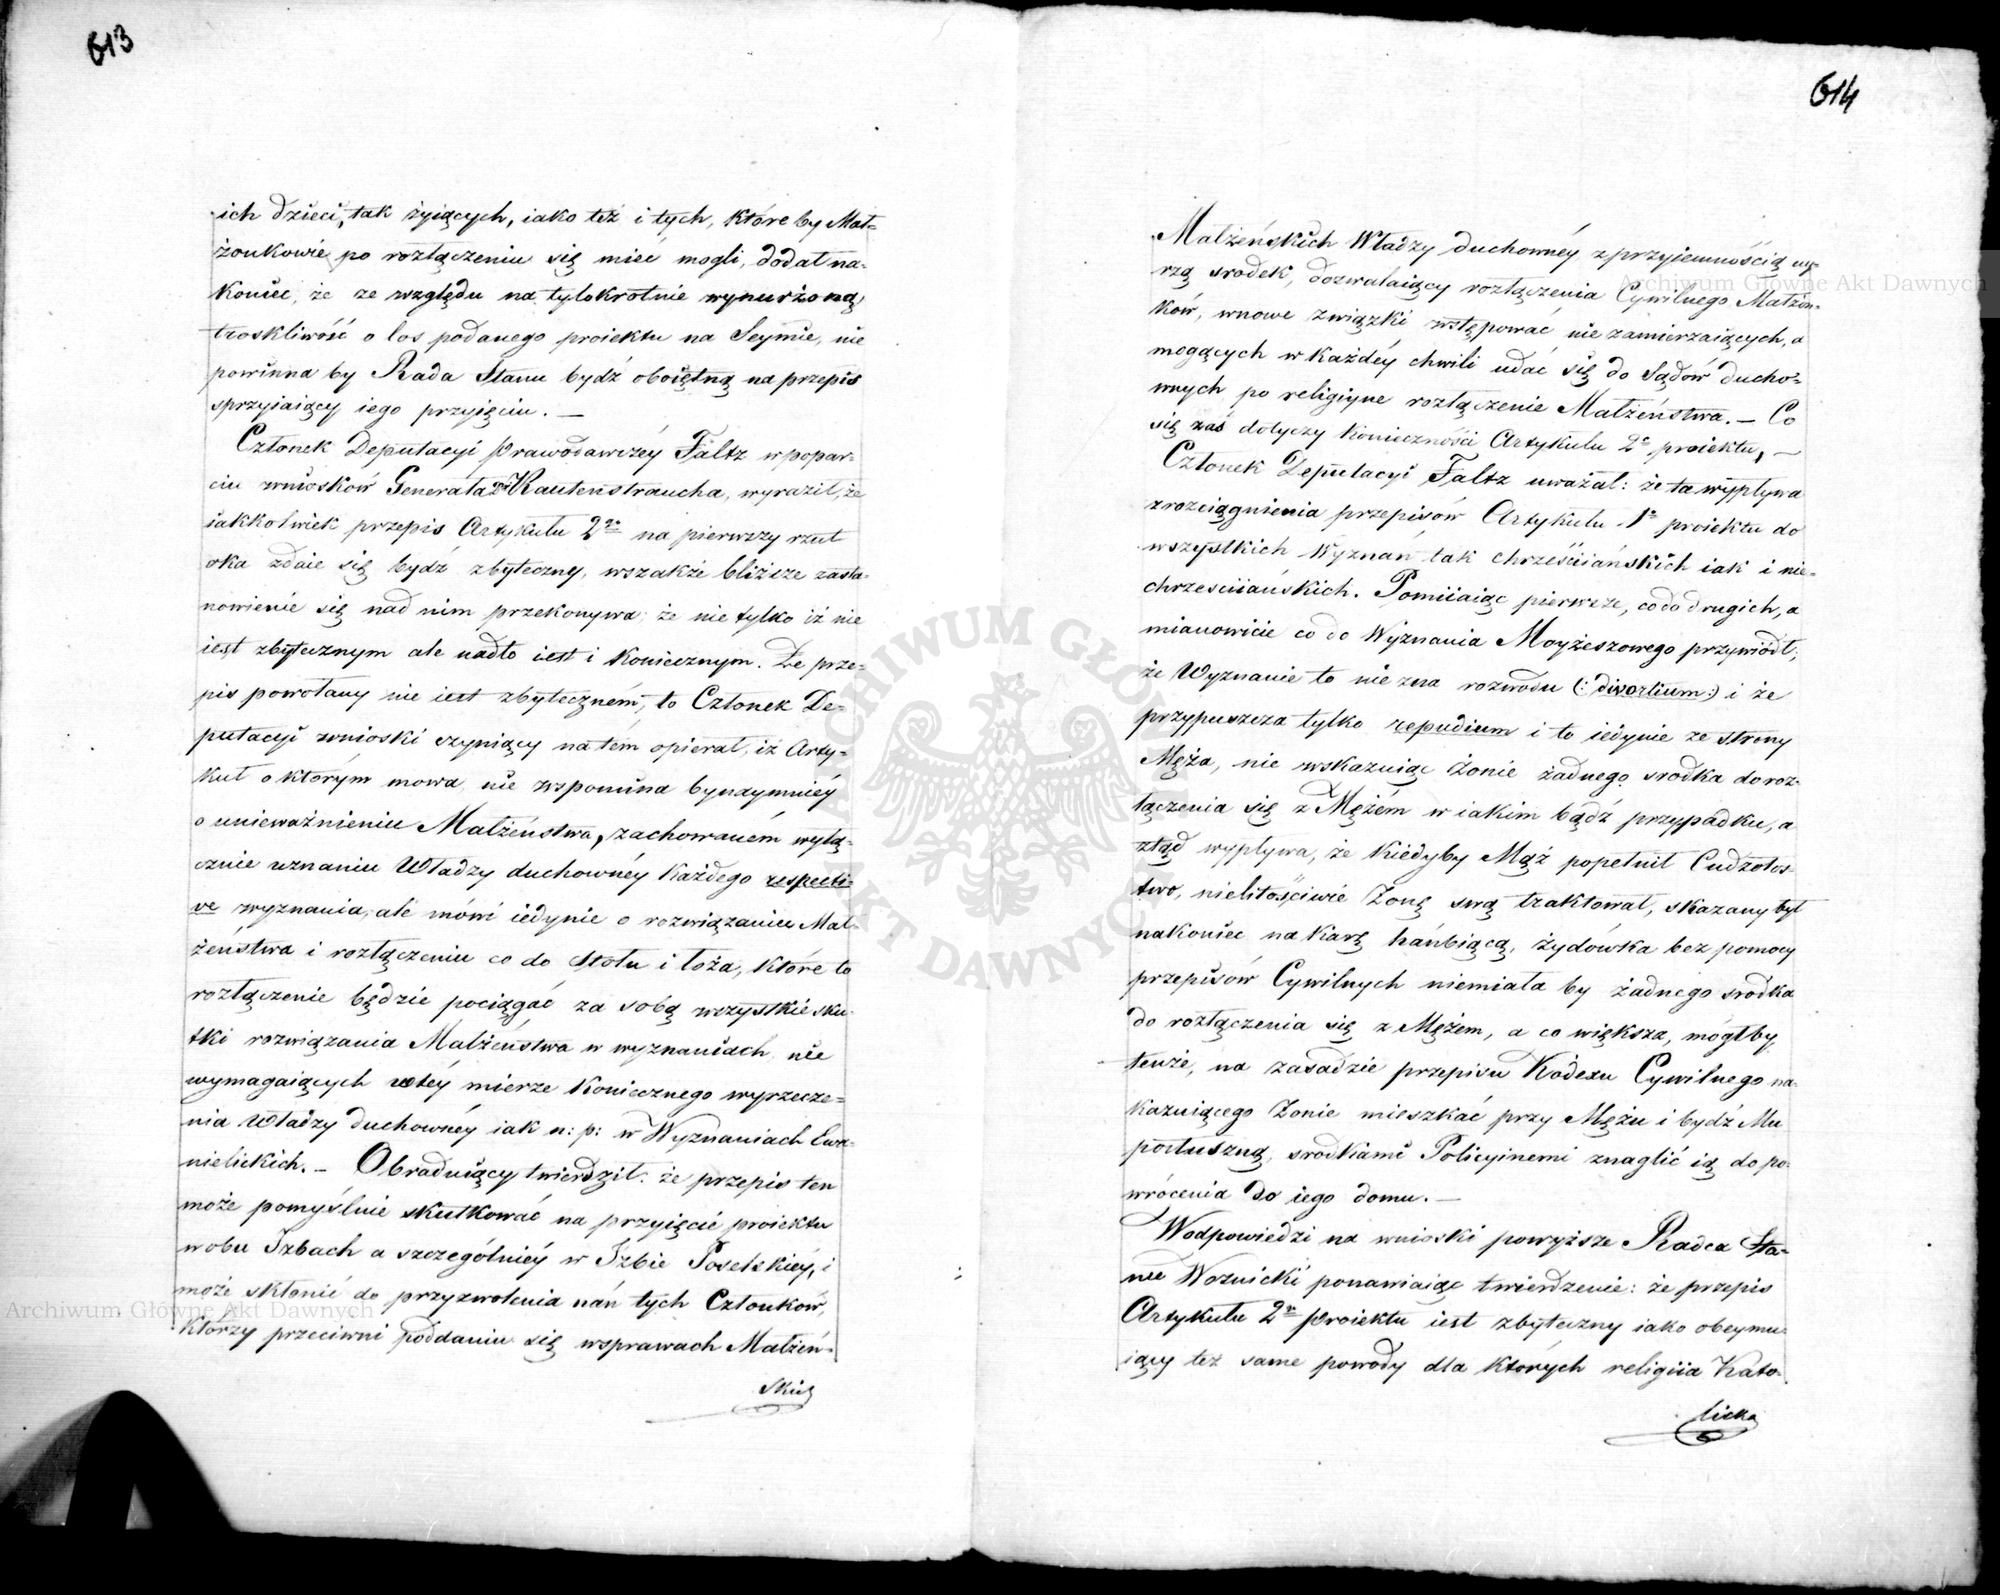 613
ich dzieci, tak żyiących, iako też i tych, które by Mał-
żonkowie po rozłączeniu się mieć mogli, dodał na-
koniec, że ze względu na tylokrotnie wynurżoną
troskliwość o los podanego proiektu na Seymie, nie
powinna by Rada Stanu bydź oboiętną na przepis
sprzyiaiący iego przyięciu. —
Członek Deputacyi Prawodawczéy Faltz w popar-
ciu wniosków Generała Rautenstraucha, wyraził, że
iakkolwiek przepis Artykułu 2go na pierwszy rzut
oka zdaie się bydź zbyteczny, wszakże bliższe zasta-
nowienie się nad nim przekonywa; że nie tylko iż nie
iest zbytecznym ale nadto iest i koniecznym. Że prze-
pis powołany nie iest zbyteczném, to Członek De-
putacyi wnioski czyniący na tém opierał, iż Arty-
kuł o którym mowa nie wspomina bynaymniéy
o unieważnieniu Małżeństwa, zachowaném wyłą-
cznie uznaniu Władzy duchownéy każdego respecti-
ve wyznania, ale mówi iedynie o rozwiązaniu Mał-
żeństwa i rozłączeniu co do stołu i łoża, które to
rozłączenie będzie pociągać za sobą wszystkie sku-
tki rozwiązania Małżeństwa w wyznaniach nie
wymagaiących w téy mierze koniecznego wyrzecze-
nia Władzy duchownéy iak n: p: w Wyznaniach Ewa-
nielickich. — Obraduiący twierdził: że przepis ten
może pomyślnie skutkować na przyięcie proiektu
w obu Izbach a szczególniéy w Izbie Poselskiéy, i
może skłonić do przyzwolenia nań tych Członków,
którzy przeciwni poddaniu się w sprawach Małżeń-
skich
614
Małżeńskich Władzy duchownéy z przyiemnością uy-
rzą srodek, dozwalaiący rozłączenia Cywilnego Małżon-
ków, w nowe związki wstępować nie zamierzaiących, a
mogących w każdéy chwili udać się do Sądów ducho-
wnych po religiyne rozłączenie Małżeństwa. — Co
się zaś dotyczy konieczności Artykułu 2o proiektu, —
Członek Deputacyi Faltz uważał: że ta wypływa
z rozciągnienia przepisów Artykułu 1o proiektu do
wszystkich Wyznań tak chrześciiańskich iak i nie-
chrzesciiańskich. Pomiiaiąc pierwsze, co do drugich, a
mianowicie co do Wyznania Moyżeszowego przywiódł;
że Wyznanie to nie zna rozwodu (: divortium :) i że
przypuszcza tylko repudium i to iedynie ze strony
Męża, nie wskazuiąc Żonie żadnego srodka do roz-
łączenia się z Mężém w iakim bądź przypadku, a
ztąd wypływa, że kiedyby Mąż popełnił Cudzołos-
two, nielitościwie Żonę swą traktował, skazany był
nakoniec na karę hańbiącą, żydówka bez pomocy
przepisów Cywilnych niemiała by żadnego srodka
do rozłączenia się z Mężem, a co większa, mógłby
tenże, na zasadzie przepisu Kodexu Cywilnego na-
kazuiącego Żonie mieszkać przy Mężu i bydź Mu
posłuszną, srodkami Policyinemi znaglić ią do po-
wrócenia do iego domu. —
W odpowiedzi na wnioski powyższe Radca Sta-
nu Woznicki ponawiaiąc twierdzenie: że przepis
Artykułu 2go Proiektu iest zbyteczny iako obeymu-
iący też same powody dla których religiia Kato-
licka